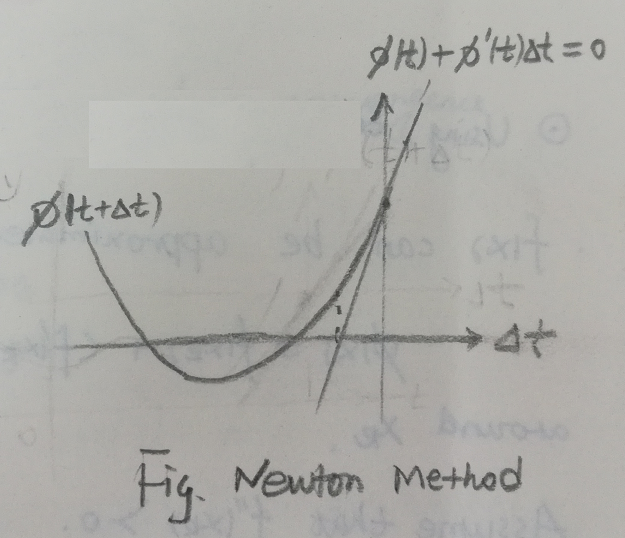 ϕ(t)+ϕ'(t)Δt=0
ϕ(t+Δt)
Δt
Fig. Newton Method